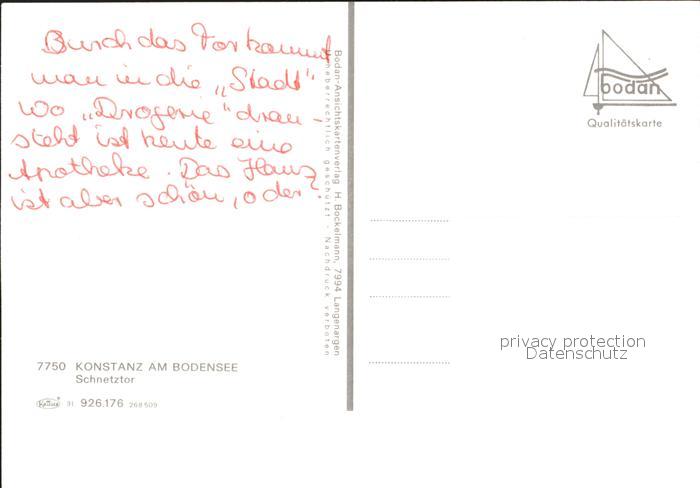 Durch das Tor kommt
man in die „Stadt"
Wo „Drogerie" drau-
steht ist heute eine
Apotheke. Das Haus
ist aber schön, oder?
Bodan-Ansichtskartenverlag H. Bockelmann, 7994 Langenargen
urheberrechtlich geschützt - Nachdruck verboten
bodan
Qualitätskarte
privacy protection
Datenschutz
7750 KONSTANZ AM BODENSEE
Schnetztor
31 926.176 268 509